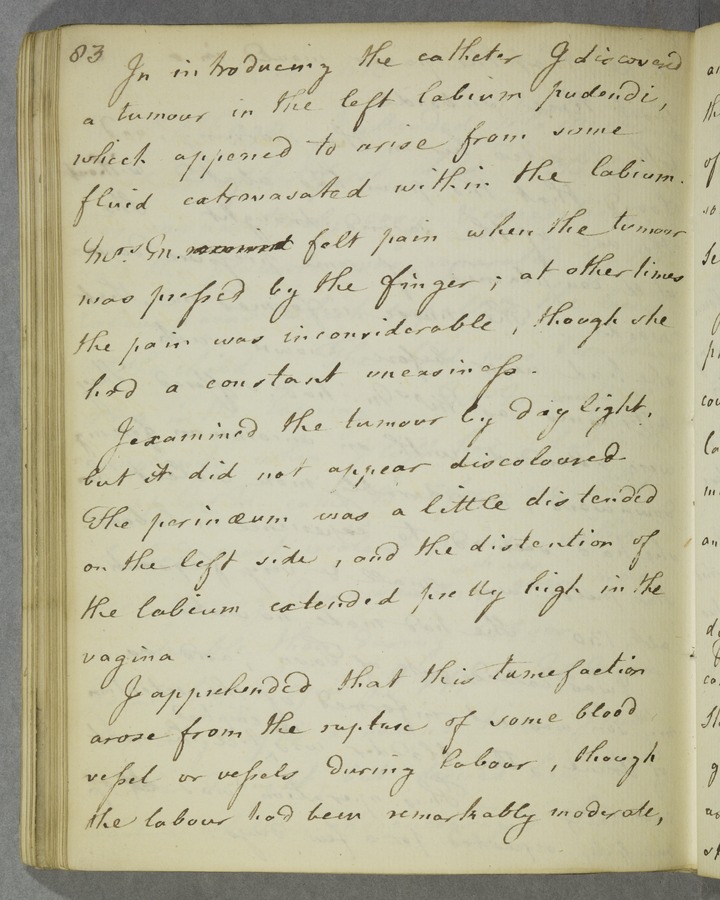 83
In introducing the catheter I discovered
a tumour in the left labium pudendi,
which appered to arise from some
fluid extravasated within the labium.
Mrs Gn. felt pain when the tumour
was pressed by the finger; at other times
the pain was inconsiderable, though she
had a constant uneasiness.
I examined the tumour by day light,
but it did not appear discoloured
The perinæum was a little distended
on the left side, and the distention of
the labium extended pretty high in the
vagina.
I apprehended that this tumefaction
arose from the rupture of some blood
vessel or vessels during labour, though
the labour had been remarkably moderate,